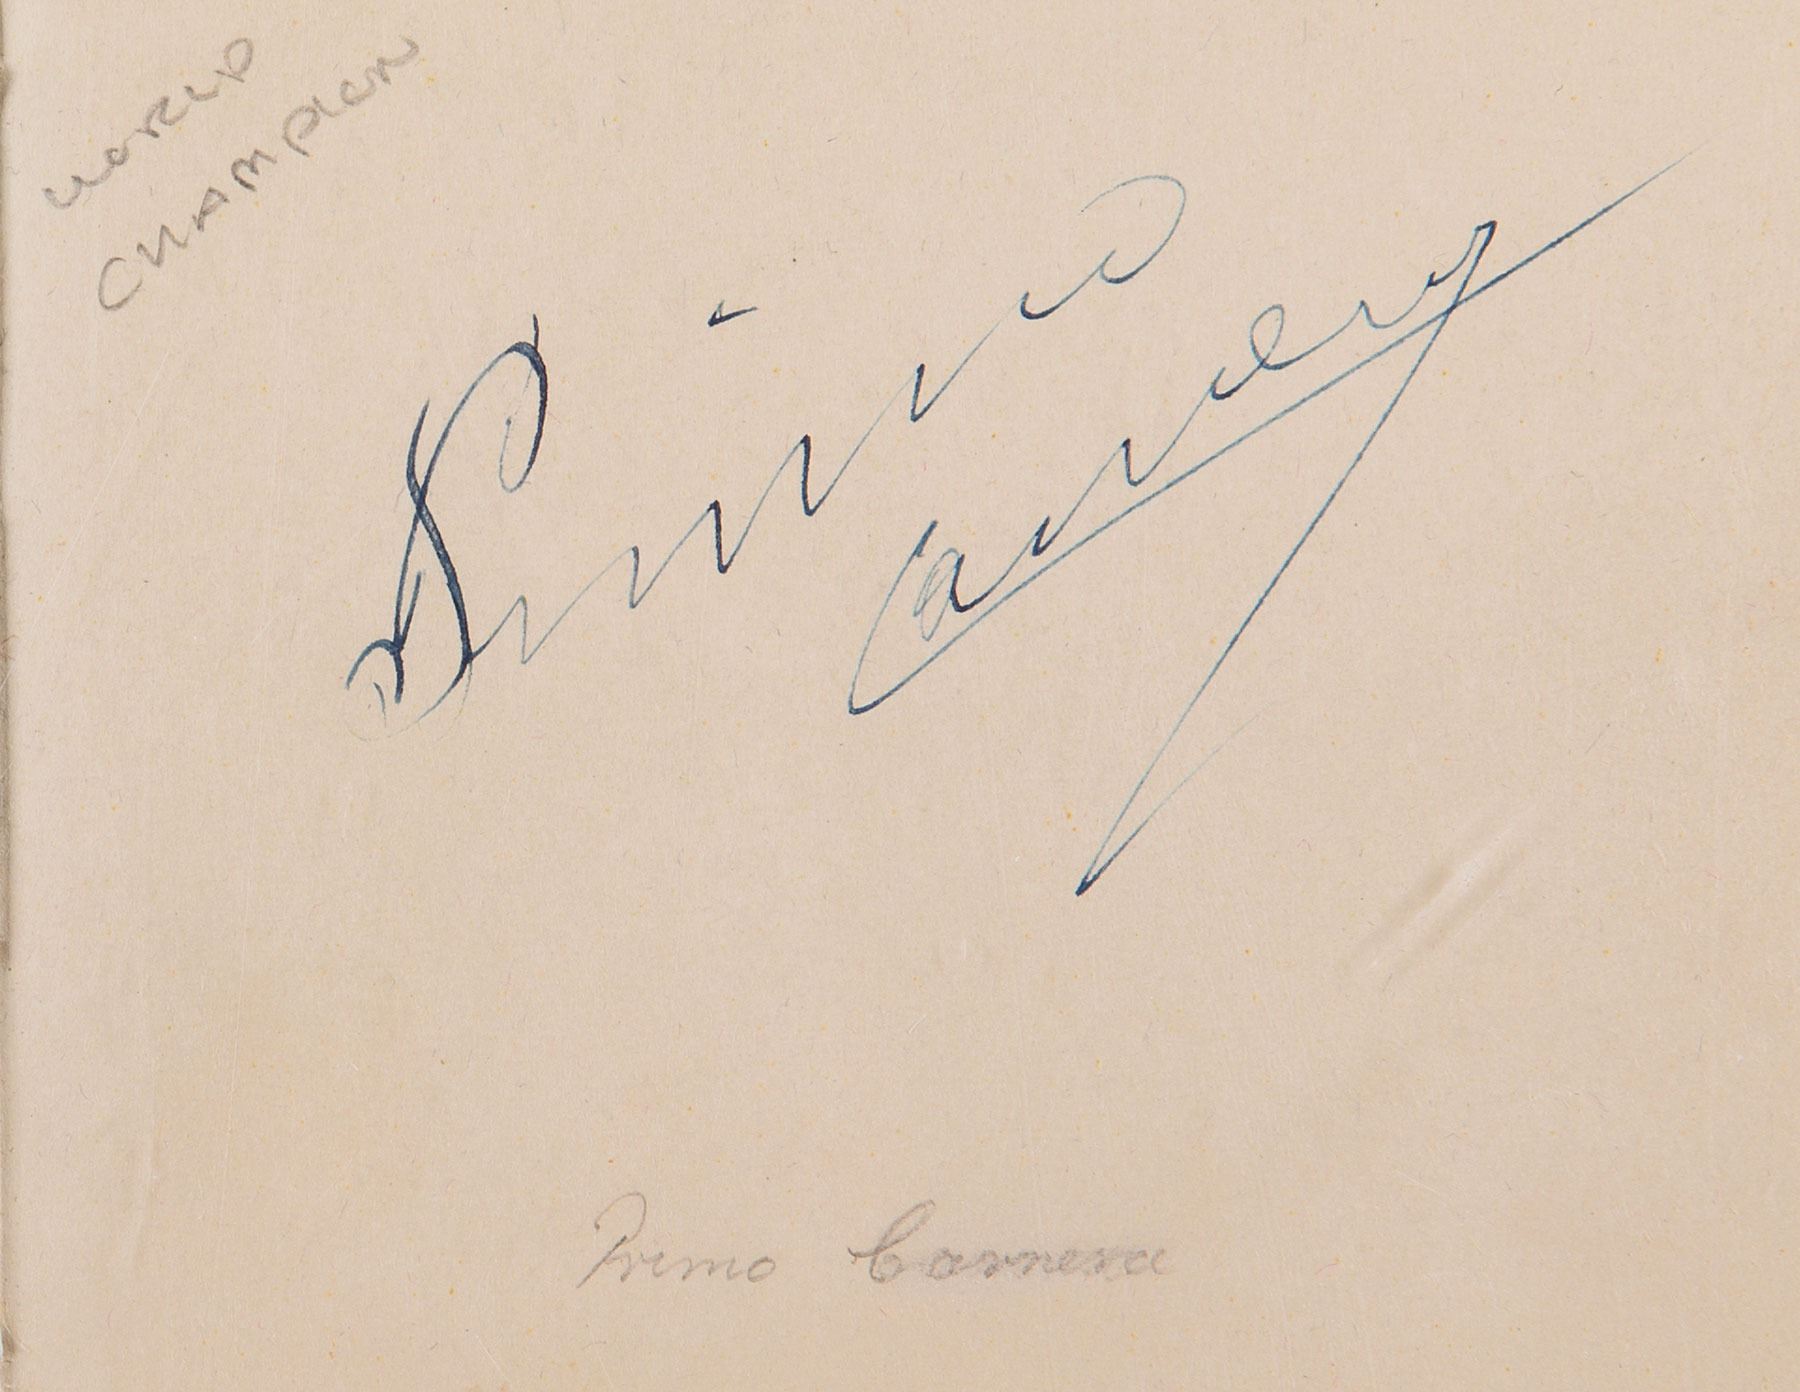 WORLD
CHAMPION
Primo
Carnera
Primo Carnera